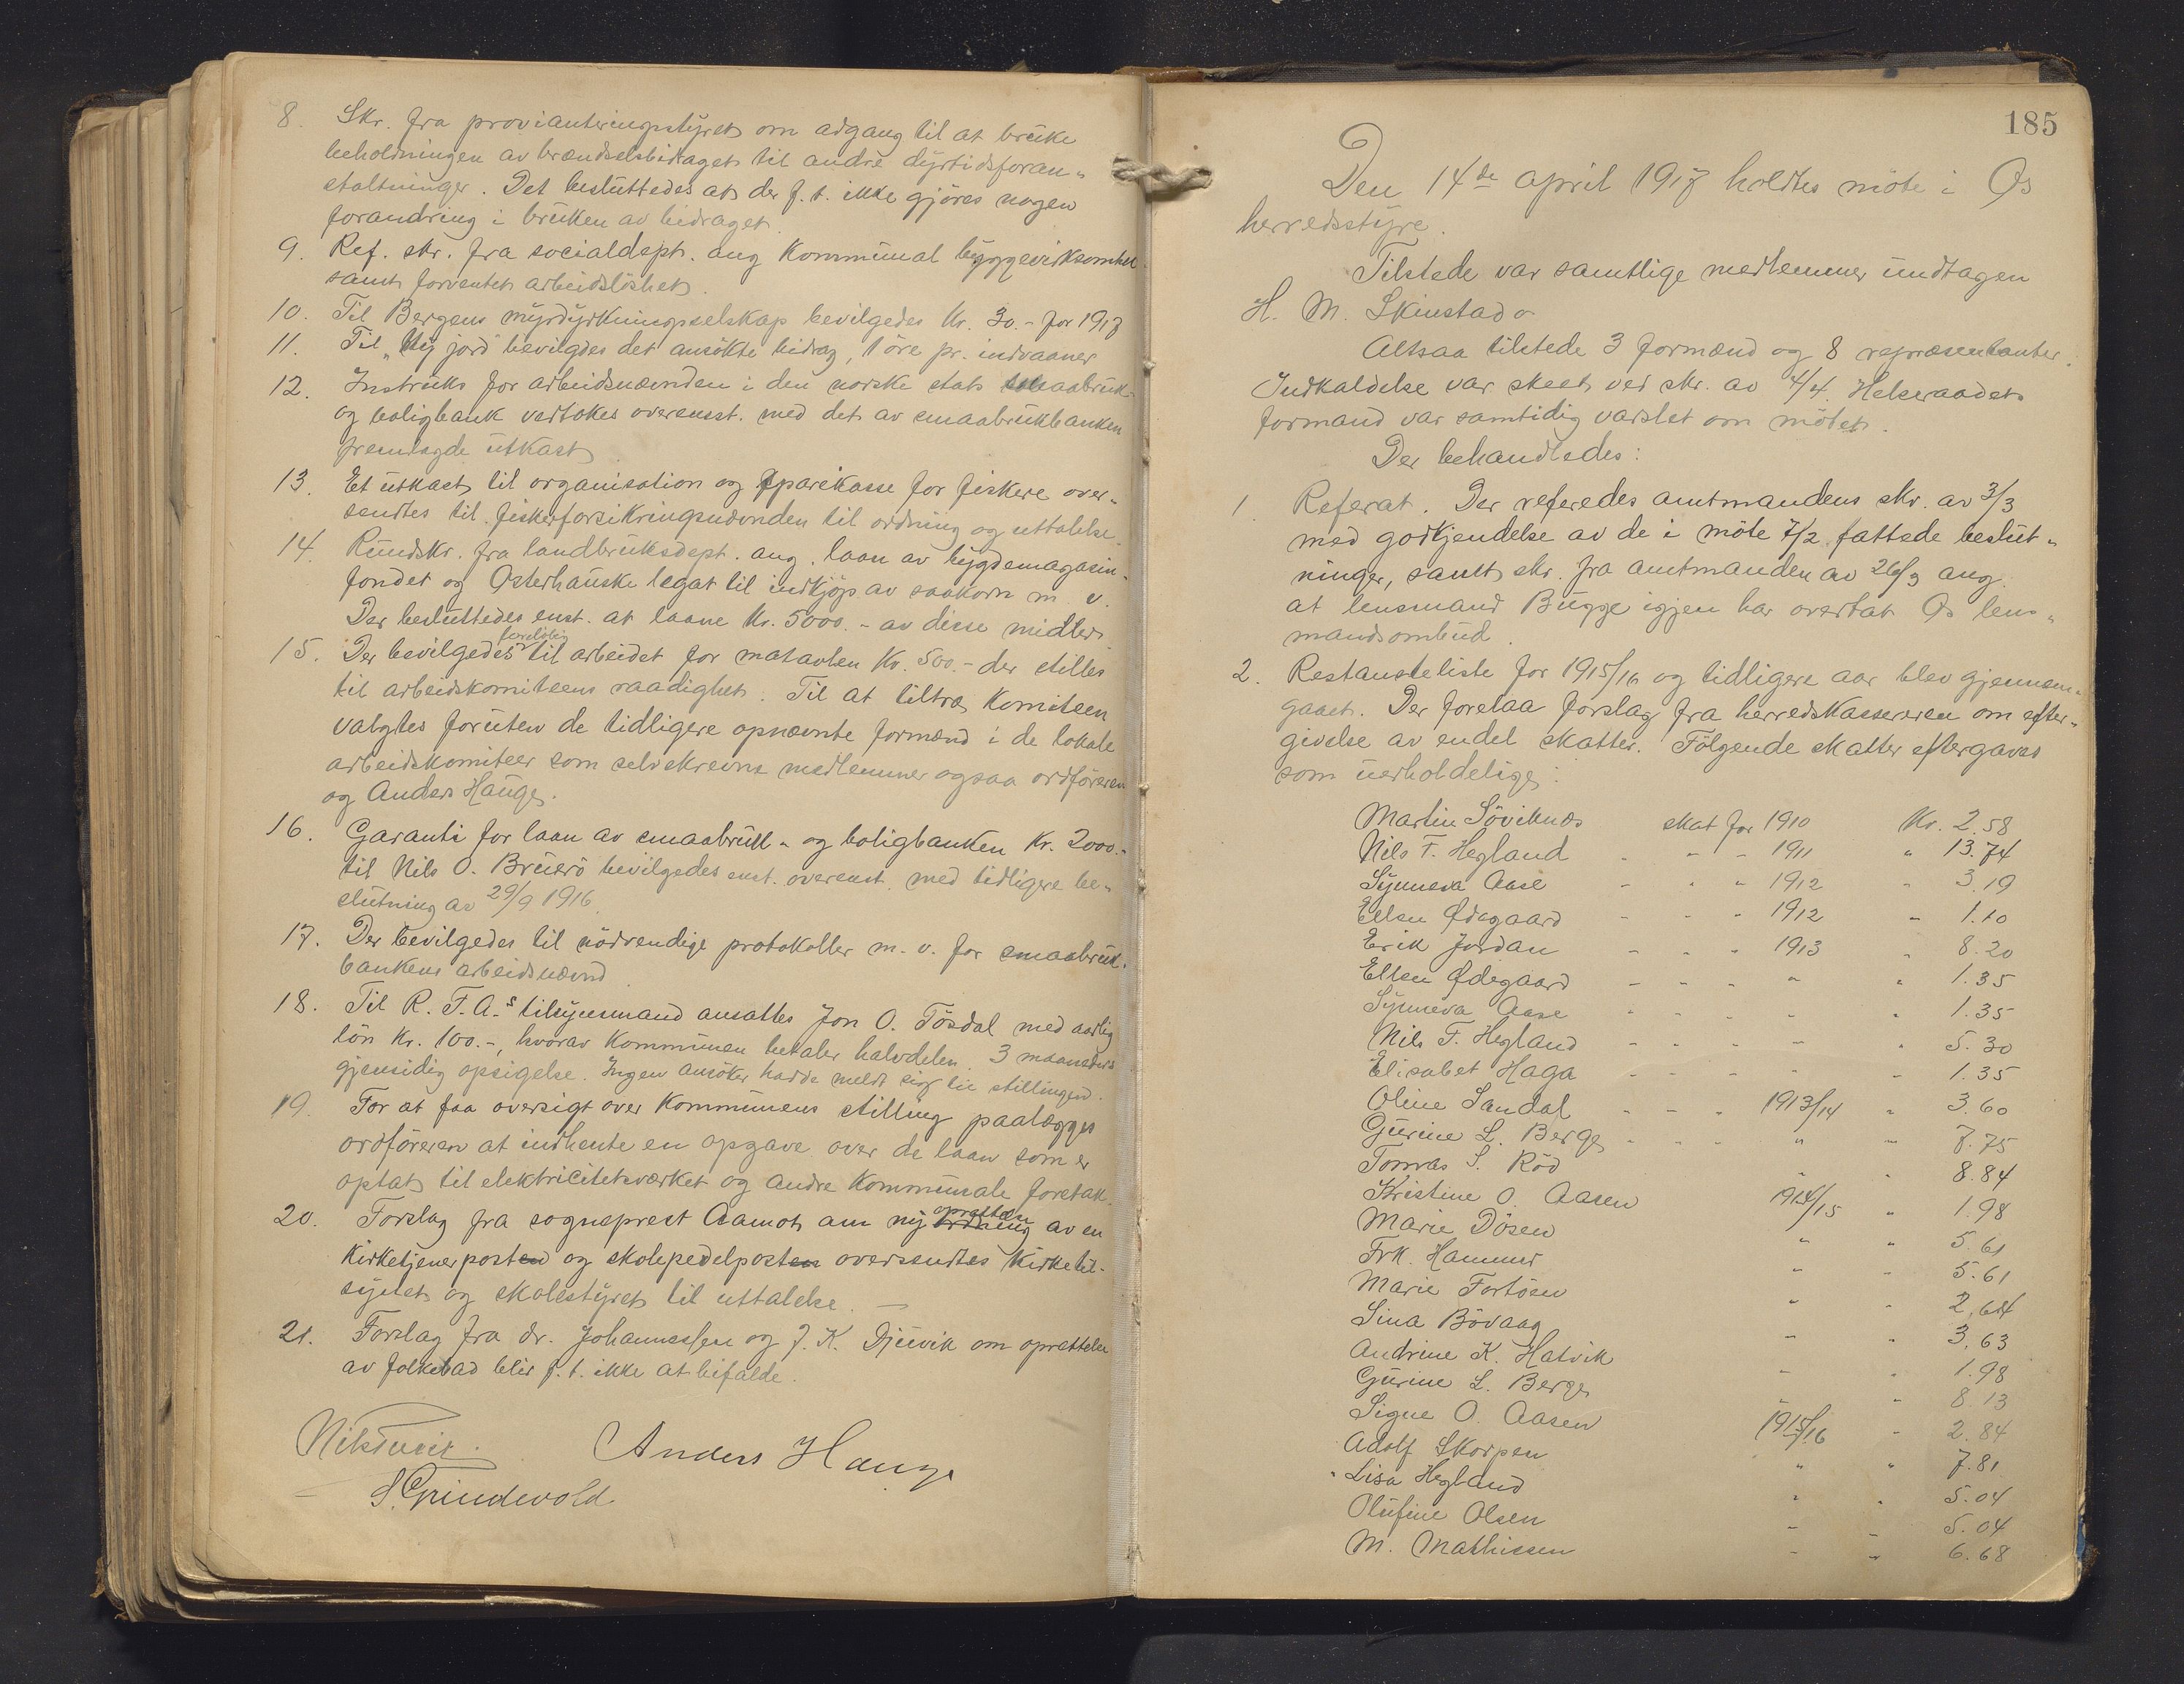 8. Skr. fra provianteringsstyret om adgang til at bruke
beholdningen av brændselsbidraget til andre dyrtidsforan-
staltninger. Det besluttedes at der f. t. ikke gjöres nogen
forandring i bruken av bidraget.
9. Ref. skr. fra socialdept. ang kommunal byggevirksomhet
samt forventet arbeidslöshet.
10. Til Bergens myrdyrkningsselskap bevilgedes kr. 30.- for 1917
11. Til „Ny jord" bevilgdes det ansökte bidrag, 1 öre pr. indvaaner
12. Instruks for arbeidsnævnden i den norske stats smaabruk-
og boligbank vedtokes overensst. med det av smaabrukbanken
fremlagde utkast
13. Et utkast til organisation og sparekasse for fiskere over-
sendtes til fiskerforsikringsnævnden til ordning og uttalelse.
14. Rundskr. fra landbruksdept. ang. laan av bygdemagasin-
fondet og Osterhauske legat til indkjöp av saakorn m. v.
Der besluttedes enst. at laane kr. 5000.- av disse midler
15. Der bevilgedes foreløbig til arbeidet for matavlen kr. 500.- der stilles
til arbeidskomiteens raadighet. Til at tiltræ komiteen
valgtes foruten de tidligere opnævnte formænd i de lokale
arbeidskomiteer som selvskrevne medlemmer ogsaa ordföreren
og Anders Hauge.
16. Garanti for laan av smaabruk- og boligbanken kr. 2000.-
til Nils O. Bruerö bevilgedes enst. overenst. med tidligere be-
slutning av 29/9 1916.
17. Der bevilgedes til nödvendige protokoller m. v. for smaabruk-
bankens arbeidsnævnd
18. Til R. T. A.s tilsynsmand ansattes Jon O. Tösdal med aarlig
lön kr. 100.-, hvorav kommunen betaler halvdelen. 3 maaneders
gjensidig opsigelse. Ingen ansöker hadde meldt sig til stillingen.
19. For at faa oversigt over kommunens stilling paalægges
ordföreren at indhente en opgave over de laan som er
optat til elektricitetsværket og andre kommunale foretak.
20. Forslag fra sogneprest Aamot om ny oprettelse ordning av en
kirketjenerposten og skolepedelposten oversendtes kirketil-
synet og skolestyret til uttalelse. —
21. Forslag fra dr. Johannessen og J. K. Djuvik om oprettelse
av folkebad blir f. t. ikke at bifalde.
Nils Tveit. Anders Hauge
S. Grindevold
185
Den 14de april 1917 holdtes möte i Os
herredsstyre.
Tilstede var samtlige medlemmer undtagen
H. M. Skinstad
Altsaa tilstede 3 formænd og 8 repræsentanter.
Indkaldelse var skeet ved skr. av 4/4. Helseraadets
formand var samtidig varslet om mötet.
Der behandledes:
1 Referat. Der referedes amtmandens skr. av 3/3
med godkjendelse av de i möte 7/2 fattede beslut-
ninger, samt skr. fra amtmanden av 26/3 ang.
at lensmand Bugge igjen har overtat Os lens-
mandsombud.
2. Restanseliste for 1915/16 og tidligere aar blev gjennem-
gaaet. Der forelaa forslag fra herredskassereren om efter-
givelse av endel skatter. Fölgende skatter eftergaves
som uerholdelige:
Martin Söviknes skat for 1910 Kr. 2.58
Nils T. Hegland - - - 1911 " 13.74
Synneva Aase - - - 1912 " 3.19
Ellen Ødegaard - - - 1912 - 1.10
Erik Jordan - - - 1913 " 8.20
Ellen Ødegaard - - - " " 1.35
Synneva Aase - - - - " 1.35
Nils T. Hegland - - - - " 5.30
Elisabet Haga - - - - - 1.35
Oline Sandal - - - 1913/14 " 3.60
Gurine L. Berge - - - " - 7.75
Tomas S. Röd " - 8.84
Kristine O. Aasen 1914/15 " 1.98
Marie Dösen " " 5.61
Frk. Hammer - - 5.61
Marie Tortösen " - 2.64
Sina Bövaag - " 3.63
Andrine K. Hatvik - - 1.98
Gurine L. Berge - - 8.13
Signe O. Aasen 1915/16 - 2.84
Adolf Skorpen " " 7.81
Lisa Hegland " " 5.04
Olufine Olsen - - 5.04
M. Mathissen - " 6.68